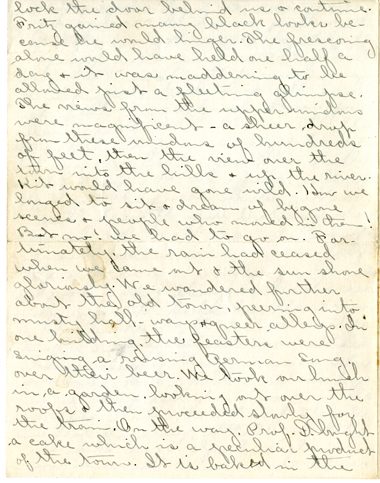 lock the door behind us & continue.
Prit gained many black looks be-
cause he would linger. The frescoing
alone would have held one half a
day & it was maddening to be
allowed just a fleeting glimpse.
The views from the upper windows
were magnificent - a sheer drop
from these windows of hundreds
of feet, then the view over the
town into the hills & up the river.
would have gone wild. How we
longed to sit & dream of bygone
scenes & people who moved in them!
But no! we had to go on. For-
tunately the rain had ceased
when we came out & the sun shone
gloriously. We wandered further
about the old town, peering into
must hall-ways & queer alleys. In
one building the feasters were
singing a rousing German song
over their beer. We took our lunch
in a garden looking out over the
roofs & then proceeded slowly for
the train. On the way, Prof. D. bought
a cake which is a peculiar product
of the town. It is baked in the